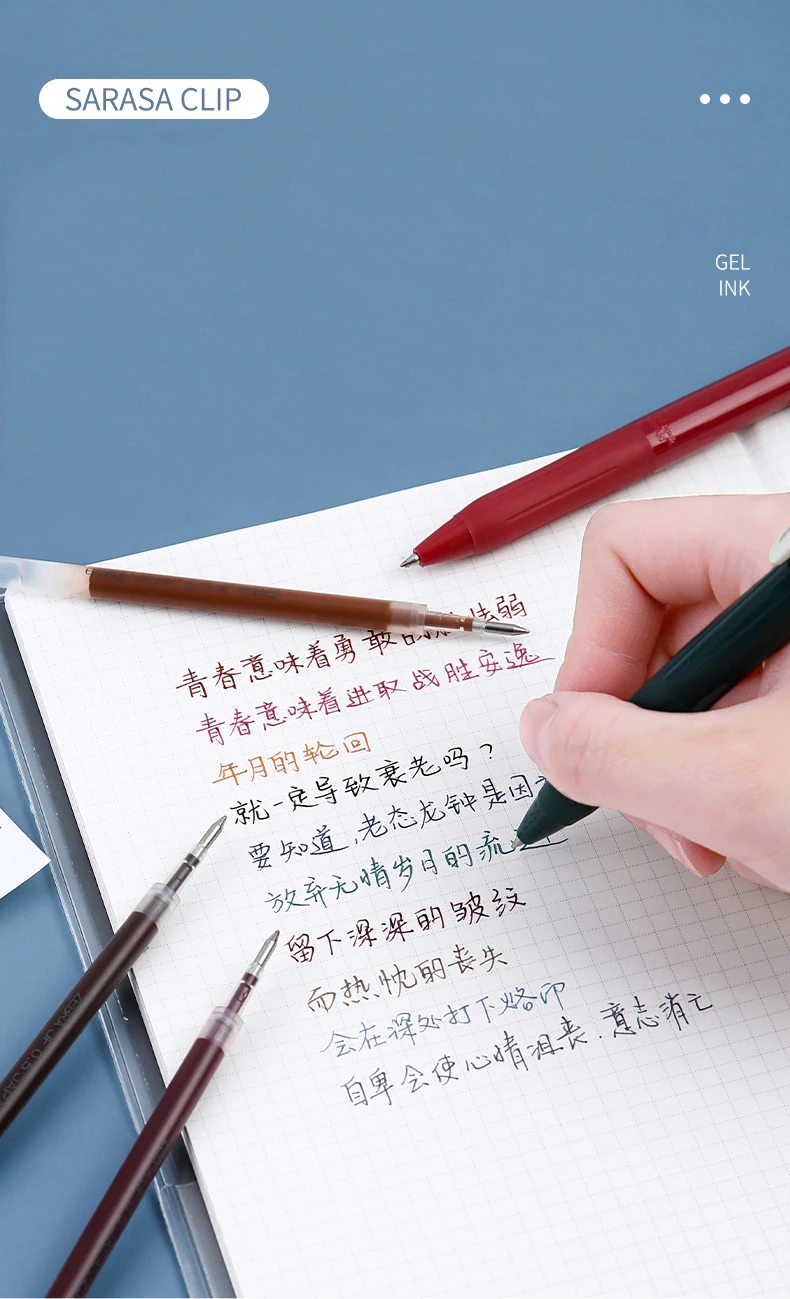 SARASA CLIP
GEL
INK
青春意味着勇敢 怯弱
青春意味着进取战胜安逸
年月的轮回
就一定导致衰老吗？
要知道,老态龙钟是因
放弃无情岁月的流
留下深深的皱纹
而热忱的丧失
会在深处打下烙印
自卑会使心情沮丧.意志消亡
ZEBRA JF-0.5 JAPAN